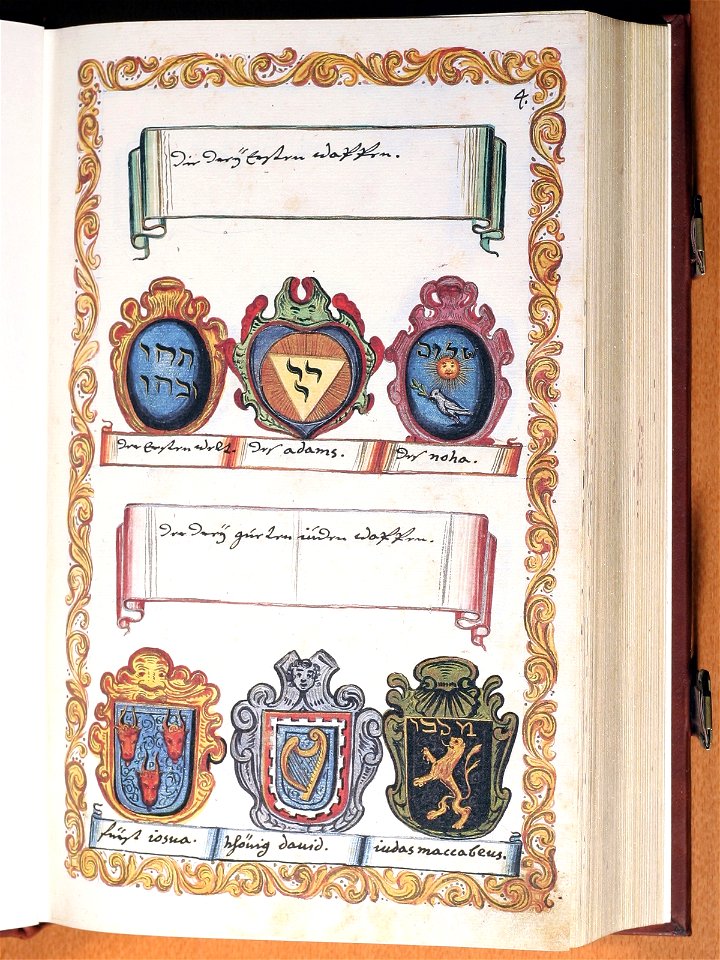 4.
die dreÿ Ersten waPPen.
תהו
ובהו
יי
י
שלום
der Ersten welt.
des adams.
des noha.
der dreÿ gueten iuden waPPen.
מכבי
fürst iosua.
khönig dauid.
iudas maccabeus.